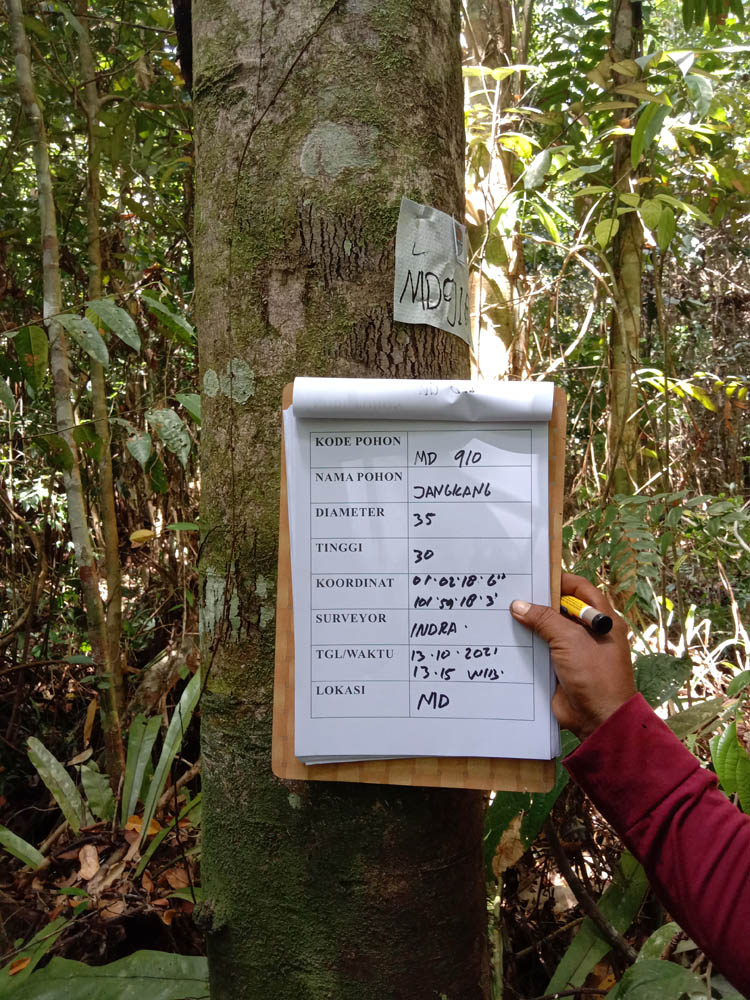 MD 910
KODE POHON MD 910
NAMA POHON JANGKANG
DIAMETER 35
TINGGI 30
KOORDINAT 01·02'18·6"
101·59'18·3'
SURVEYOR INDRA·
TGL/WAKTU 13·10·2021
13·15 WIB·
LOKASI MD